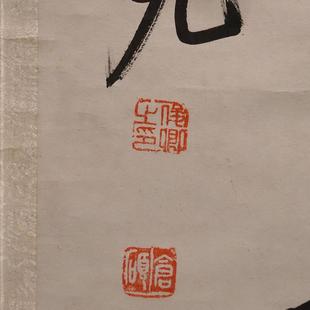 俊卿
之印
倉碩